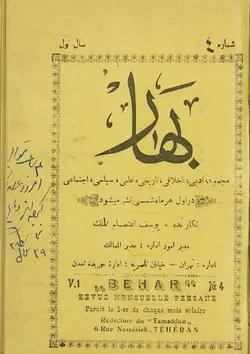 شماره ٤
سال اول
بهار
مجموعهٔ ادبی، اخلاقی، تاریخی، علمی، سیاسی، اجتماعی
در اول هر ماه شمسی نشر میشود
نگارنده - یوسف اعتصام الملك
مدیر امور اداره : مدبر الممالك
اداره : تهران - خیابان ناصریه : اداره جریده تمدن
V.1 „BEHAR“ № 4
REVUE MENSUELLE PERSANE
Parait le 1-er de chaque mois solaire
Rédaction du "Tamaddon"
6 Rue Nasserieh, TÉHÉRAN